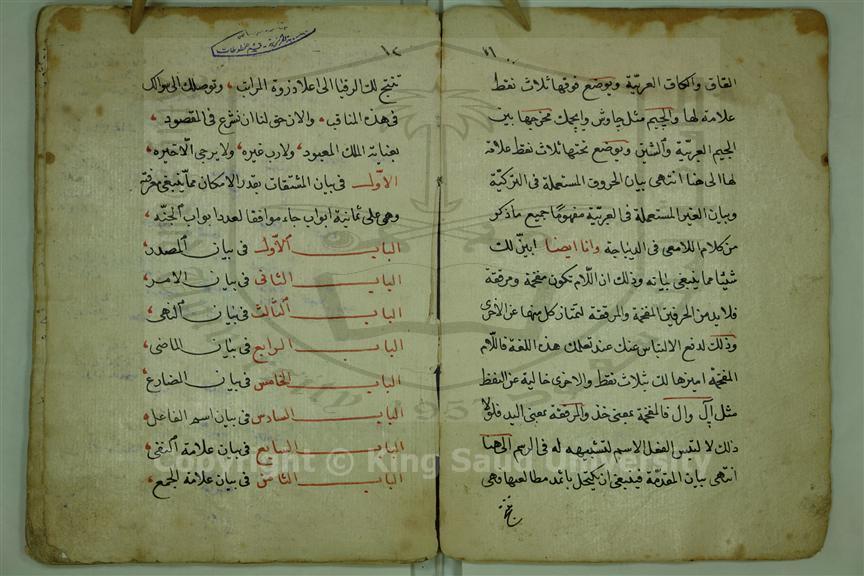 ١١
القاف والكاف العربيّة ويوضع فوقها ثلاث نقط
علامة لها والجيم مثل چاوش وايچمك مخرجها بين
الجيم العربيّة والشين ويوضع تحتها ثلاث نقط علامة
لها الى هنا انتهى بيان الحروف المستعملة فى التركيّة
وبيان الغير المستعملة فى العربيّة مفهومًا جميع ما ذكر
من كلام اللامعى فى الديباجة وانا ايضا ابيّن لك
شيئا مما ينبغى بيانه وذلك ان اللّام تكون مفخمة ومرققة
فلابد من الحرفين المفخمة والمرققة لتمتاز كل منها عن الاخرى
وذلك لدفع الالتباس عنك عند تعلمك هذه اللغة فاللّام
المفخمة اميزها لك ثلاث نقط والاخرى خالية عن النقط
مثل ال وال فالمفخمة بمعنى خذ والمرققة بمعنى اليد فلولا
ذلك لالتبس الفعل الاسم لتشبيهه له فى الرسم الى هنا
انتهى بيان المقدّمة فينبغى ان يكتحل باثمد مطالعها وهى
١٢
تنتج لك الرقيا الى اعلا ذروة المراتب وتوصلك الى
فى هذه المناقب والان حق لنا ان نشرع فى المقصود
بعناية الملك المعبود ولا رب غيره ولا يرجى الا خيره
الأوّل فى بيان المشتقات بقدر الامكان ممّا ينبغى معرفته
وهى على ثمانية ابواب جاء موافقا لعدد ابواب الجنّة
الباب الأوّل فى بيان المصدر
الباب الثانى فى بيان الامر
الباب الثالث فى بيان النهى
الباب الرابع فى بيان الماضى
الباب الخامس فى بيان المضارع
الباب السادس فى بيان اسم الفاعل
الباب السابع فى بيان علامة النفى
الباب الثامن فى بيان علامة الجمع
Copyright © King Saud University
1957